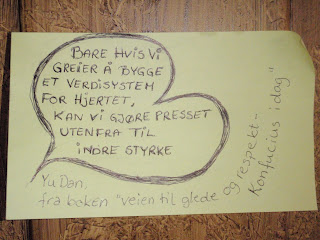 BARE HVIS VI
GREIER Å BYGGE
ET VERDISYSTEM
FOR HJERTET,
KAN VI GJØRE PRESSET
UTENFRA TIL
INDRE STYRKE
Yu Dan,
fra boken "veien til glede og respekt -
Konfucius i dag"